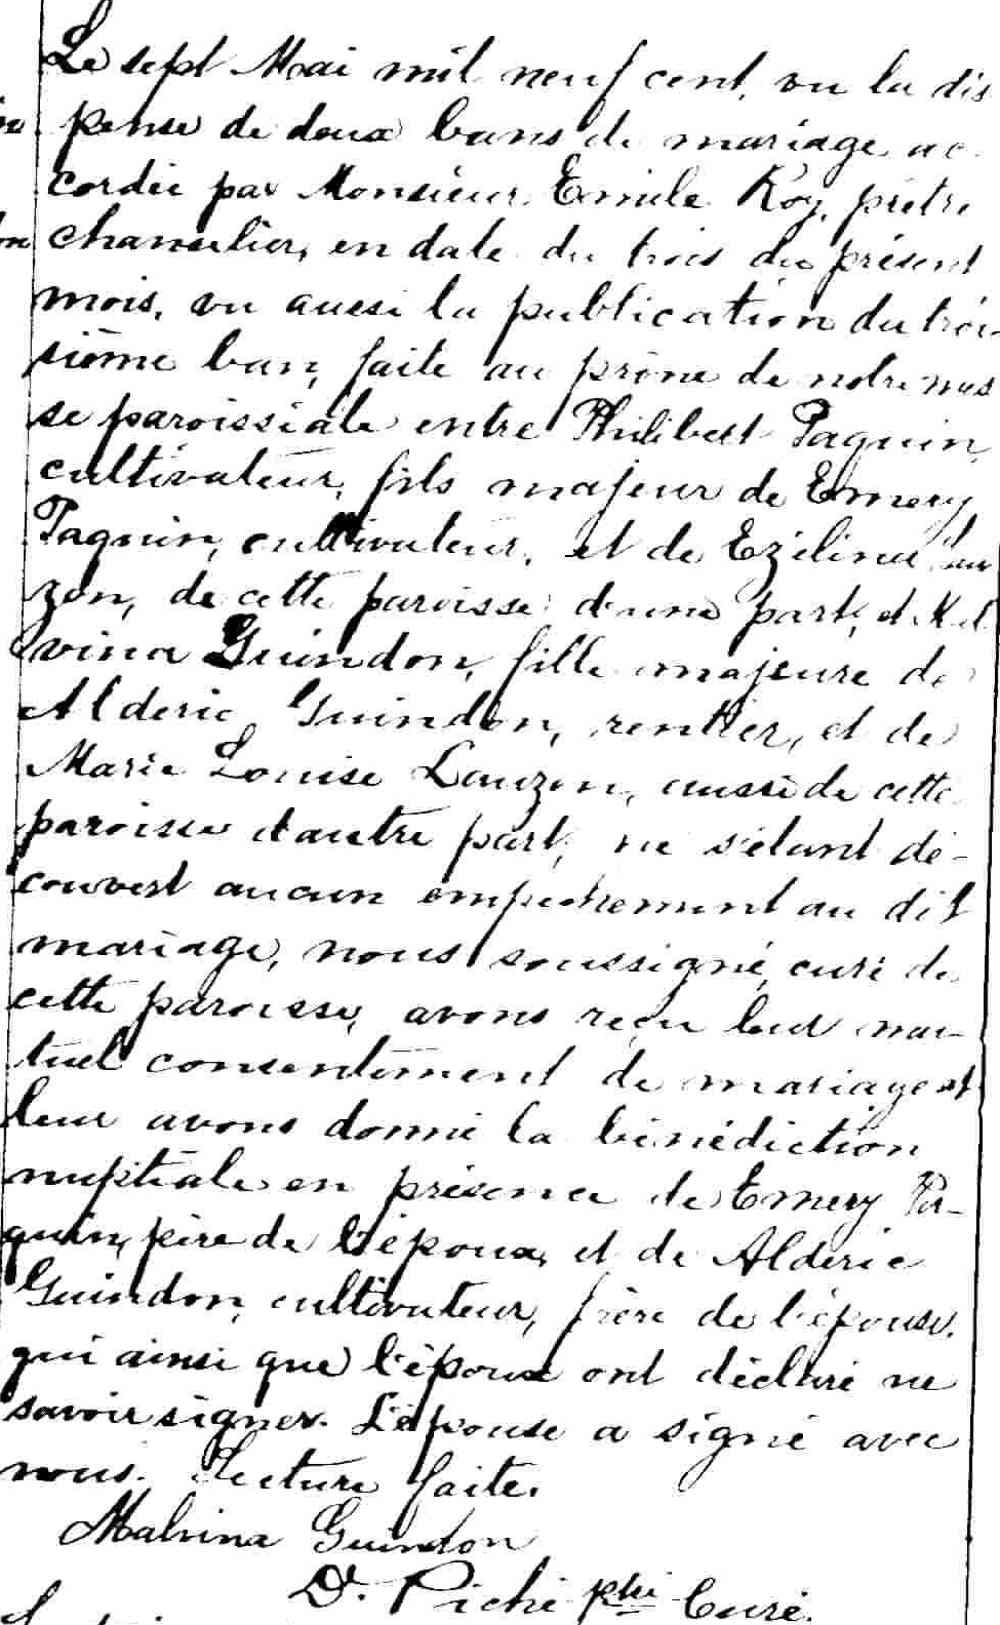 Le sept Mai mil neuf cent, vu la dis
pense de deux bans de mariage ac
cordée par Monsieur Emile Roy, prêtre
chancelier, en date du trois du présent
mois, vu aussi la publication du troi
sième ban, faite au prône de notre mes
se paroissiale entre Philibert Paquin,
cultivateur, fils majeur de Emery
Paquin, cultivateur, et de Ezilina Lau
zon, de cette paroisse d'une part, et Mal
vina Guindon, fille majeure de
Alderic Guindon, rentier, et de
Marie Louise Lauzon, aussi de cette
paroisse d'autre part, ne s'étant dé-
couvert aucun empechement au dit
mariage, nous soussigné, curé de
cette paroisse, avons reçu leur mu-
tuel consentement de mariage et
leur avons donné la bénédiction
nuptiale en présence de Emery Pa-
quin, père de l'époux, et de Alderic
Guindon, cultivateur, frère de l'épouse,
qui ainsi que l'époux ont déclaré ne
savoir signer. L'épouse a signé avec
nous. Lecture faite.
Malvina Guindon
D. Piché ptre Curé.